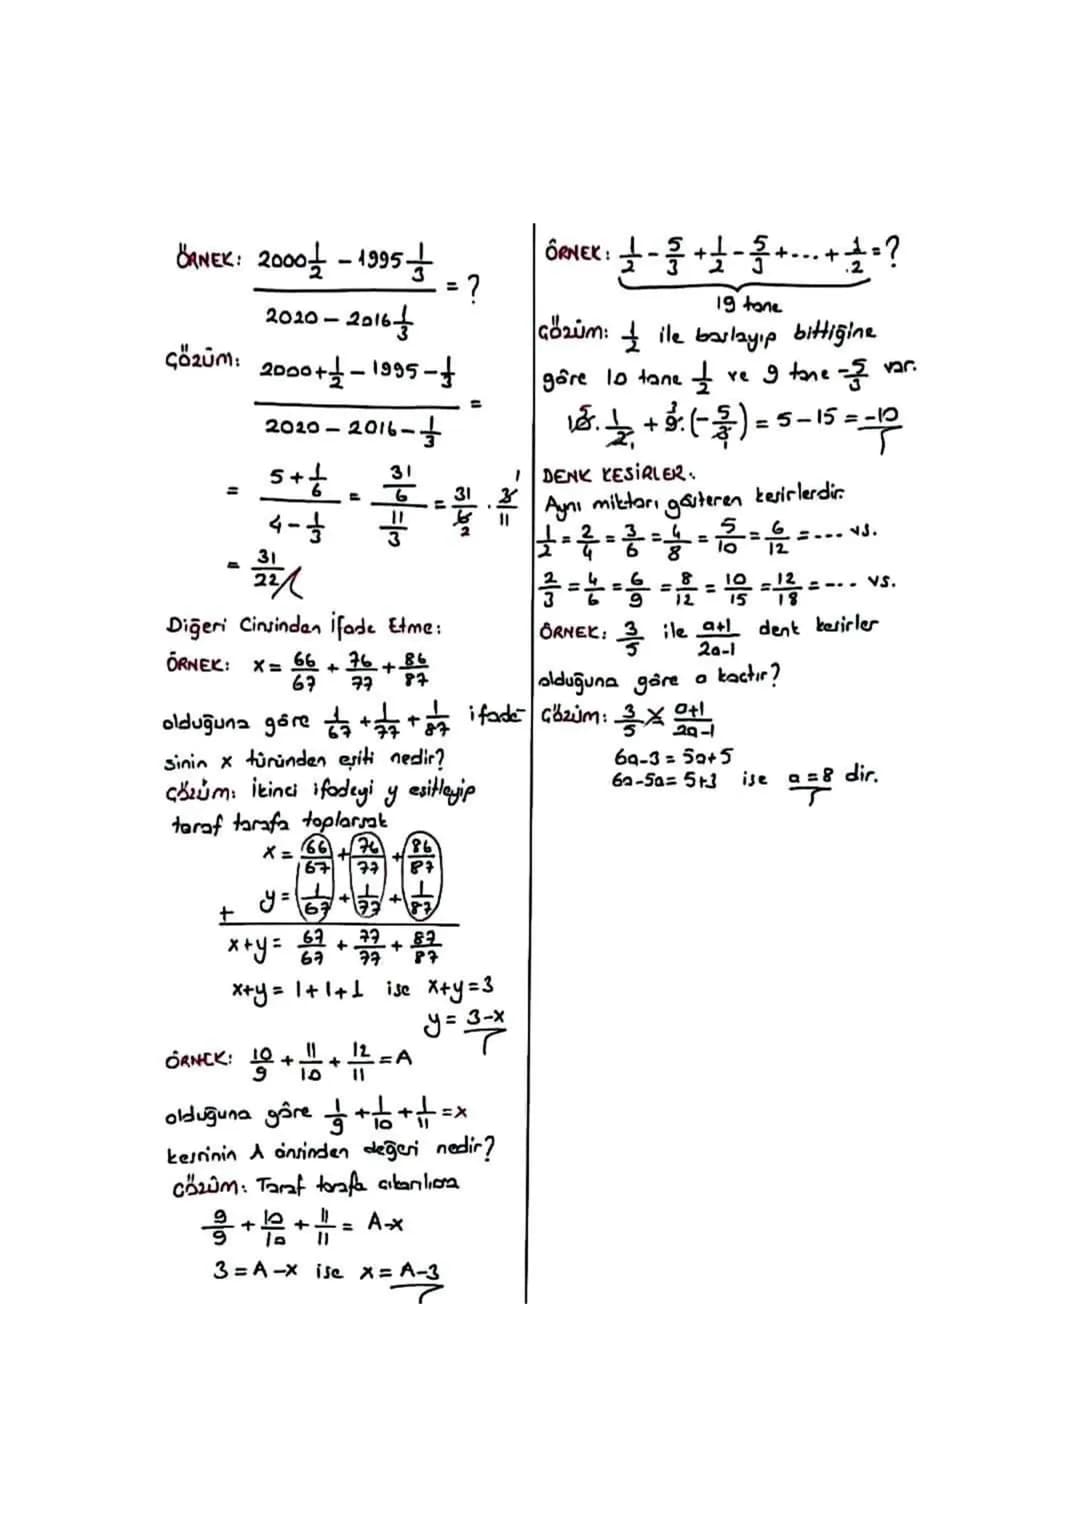 ÖRNEK: 2000 1/2 - 1995 1/3 / 2020 - 2016 1/3 = ?
ÇÖZÜM: 2000 + 1/2 - 1995 - 1/3 / 2020 - 2016 - 1/3 =
= 5 + 1/6 / 4 - 1/3 = 31/6 / 11/3 = 31/6 . 3/11
= 31/22
Diğeri Cinsinden İfade Etme:
ÖRNEK: x = 66/67 + 76/77 + 86/87
olduğuna göre 1/67 + 1/77 + 1/87 ifade-
sinin x türünden eşiti nedir?
Çözüm: İkinci ifadeyi y eşitleyip
taraf tarafa toplarsak
x = 66/67 + 76/77 + 86/87
+ y = 1/67 + 1/77 + 1/87
x+y = 67/67 + 77/77 + 87/87
x+y = 1+1+1 ise x+y=3
y = 3-x
ÖRNEK: 10/9 + 11/10 + 12/11 = A
olduğuna göre 1/9 + 1/10 + 1/11 = x
kesrinin A cinsinden değeri nedir?
Çözüm: Taraf tarafa çıkarılırsa
9/9 + 10/10 + 11/11 = A-x
3 = A-x ise x = A-3
ÖRNEK: 1/2 - 5/3 + 1/2 - 5/3 + ... + 1/2 = ?
19 tane
Çözüm: 1/2 ile başlayıp bittiğine
göre 10 tane 1/2 ve 9 tane -5/3 var.
10 . 1/2 + 9 . (-5/3) = 5 - 15 = -10
DENK KESİRLER:
Aynı miktarı gösteren kesirlerdir.
1/2 = 2/4 = 3/6 = 4/8 = 5/10 = 6/12 = ... vs.
2/3 = 4/6 = 6/9 = 8/12 = 10/15 = 12/18 = ... vs.
ÖRNEK: 3/5 ile a+1/2a-1 denk kesirler
olduğuna göre a kaçtır?
Çözüm: 3/5 × a+1/2a-1
6a-3 = 5a+5
6a-5a = 5+3 ise a = 8 dir.